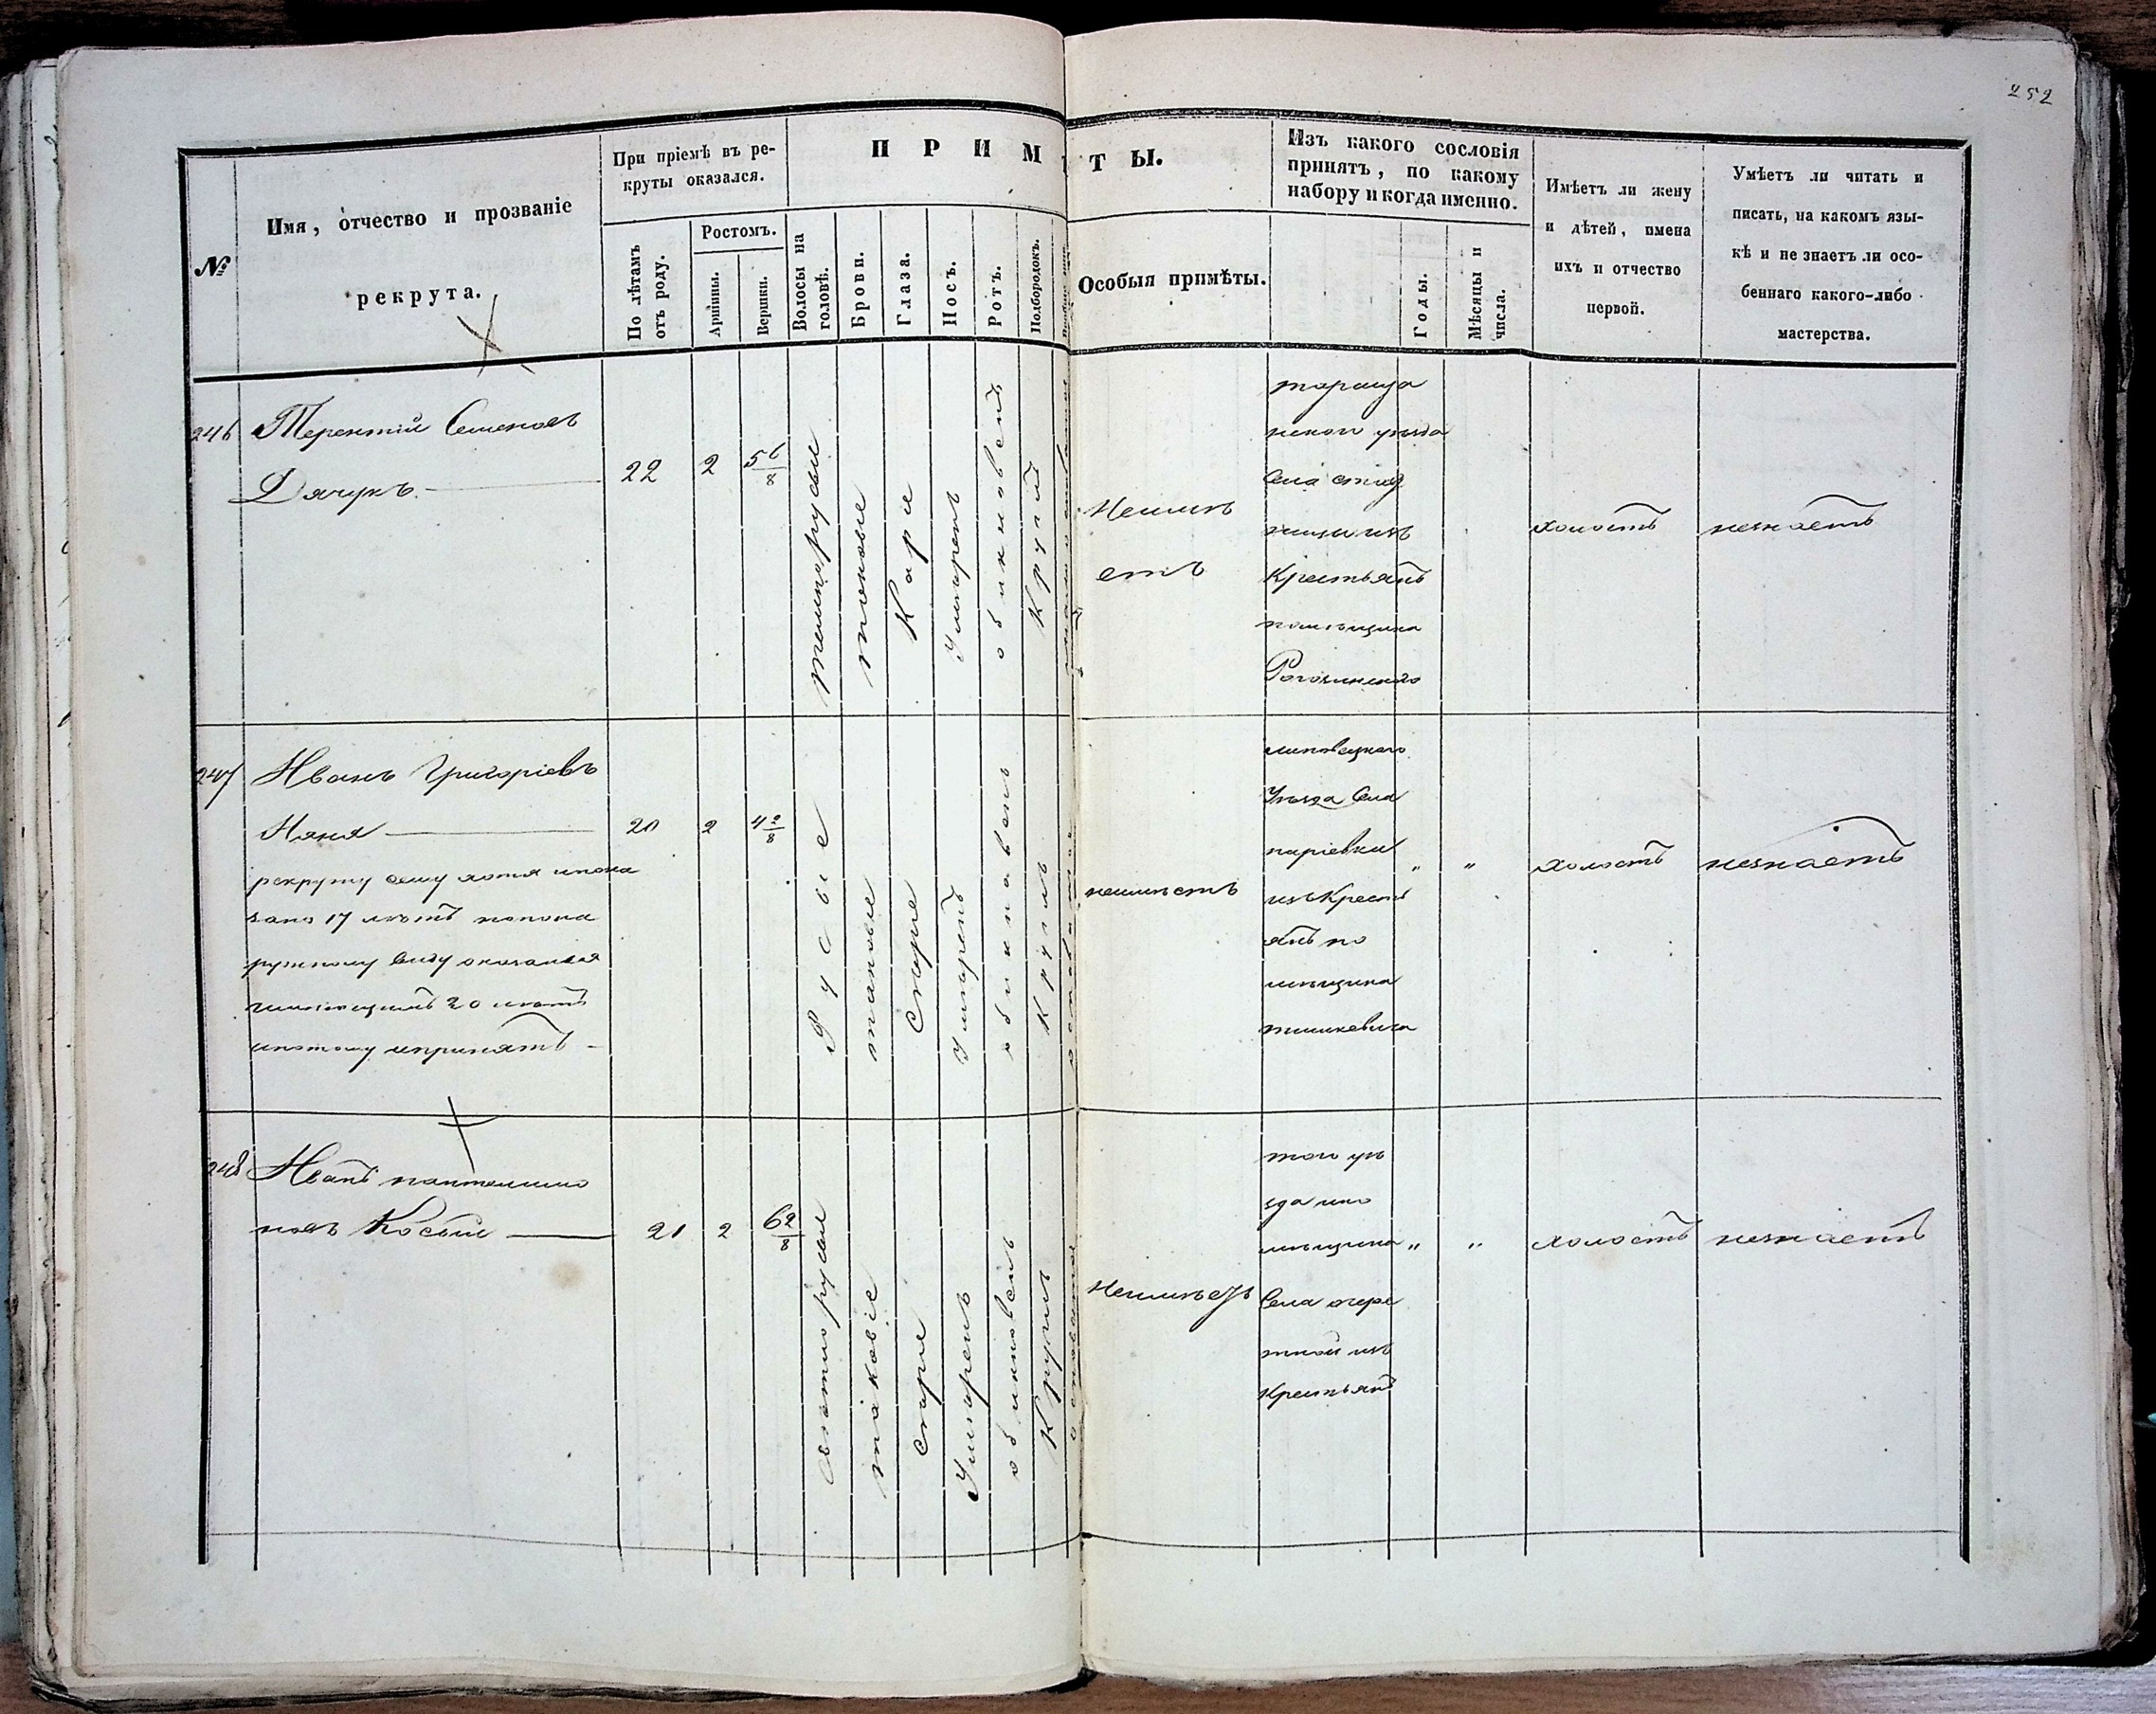 252
№
Имя, отчество и прозваніе
рекрута.
При пріемѣ въ ре-
круты оказался.
По лѣтамъ
отъ роду.
Ростомъ.
Аршины.
Вершки.
ПРИМѢТЫ.
Волосы на
головѣ.
Брови.
Глаза.
Носъ.
Ротъ.
Подбородокъ.
Особыя примѣты.
Изъ какого сословія
принятъ, по какому
набору и когда именно.
Годы.
Мѣсяцы и
числа.
Имѣетъ ли жену
и дѣтей, имена
ихъ и отчество
первой.
Умѣетъ ли читать и
писать, на какомъ язы-
кѣ и не знаетъ ли осо-
беннаго какого-либо
мастерства.
246
Терентій Семеновъ
Дячукъ.
22
2
5 6/8
темнорусые
таковые
Каріе
Умѣренъ
обикновенъ
Круглъ
Неимѣ
етъ
тараща
нскаго уѣзда
Села
изъ
Крестьянъ
помѣщика
холостъ
незнаетъ
247
Иванъ Григоріевъ
Няня
рекруту сему хотя и пока
зано 17 лѣтъ но по на
ружному виду оказался
имѣющимъ 20 лѣтъ
и потому и принятъ
20
2
4 2/8
Русые
таковые
Сѣрые
Умѣренъ
обикновенъ
Круглъ
неимѣетъ
липовецкаго
Уѣзда Села
паріевки
изъ Крест
янъ по
мѣщика
тишкевича
„
„
холостъ
незнаетъ
248
Иванъ пантелимо
новъ Косый
21
2
6 2/8
свѣтлорусые
таковіе
Сѣрые
Умѣренъ
обикновенъ
Круглъ
Неимѣетъ
того уѣ
зда и по
мѣщика
Села очере
тной изъ
Крестьянъ
„
„
холостъ
незнаетъ